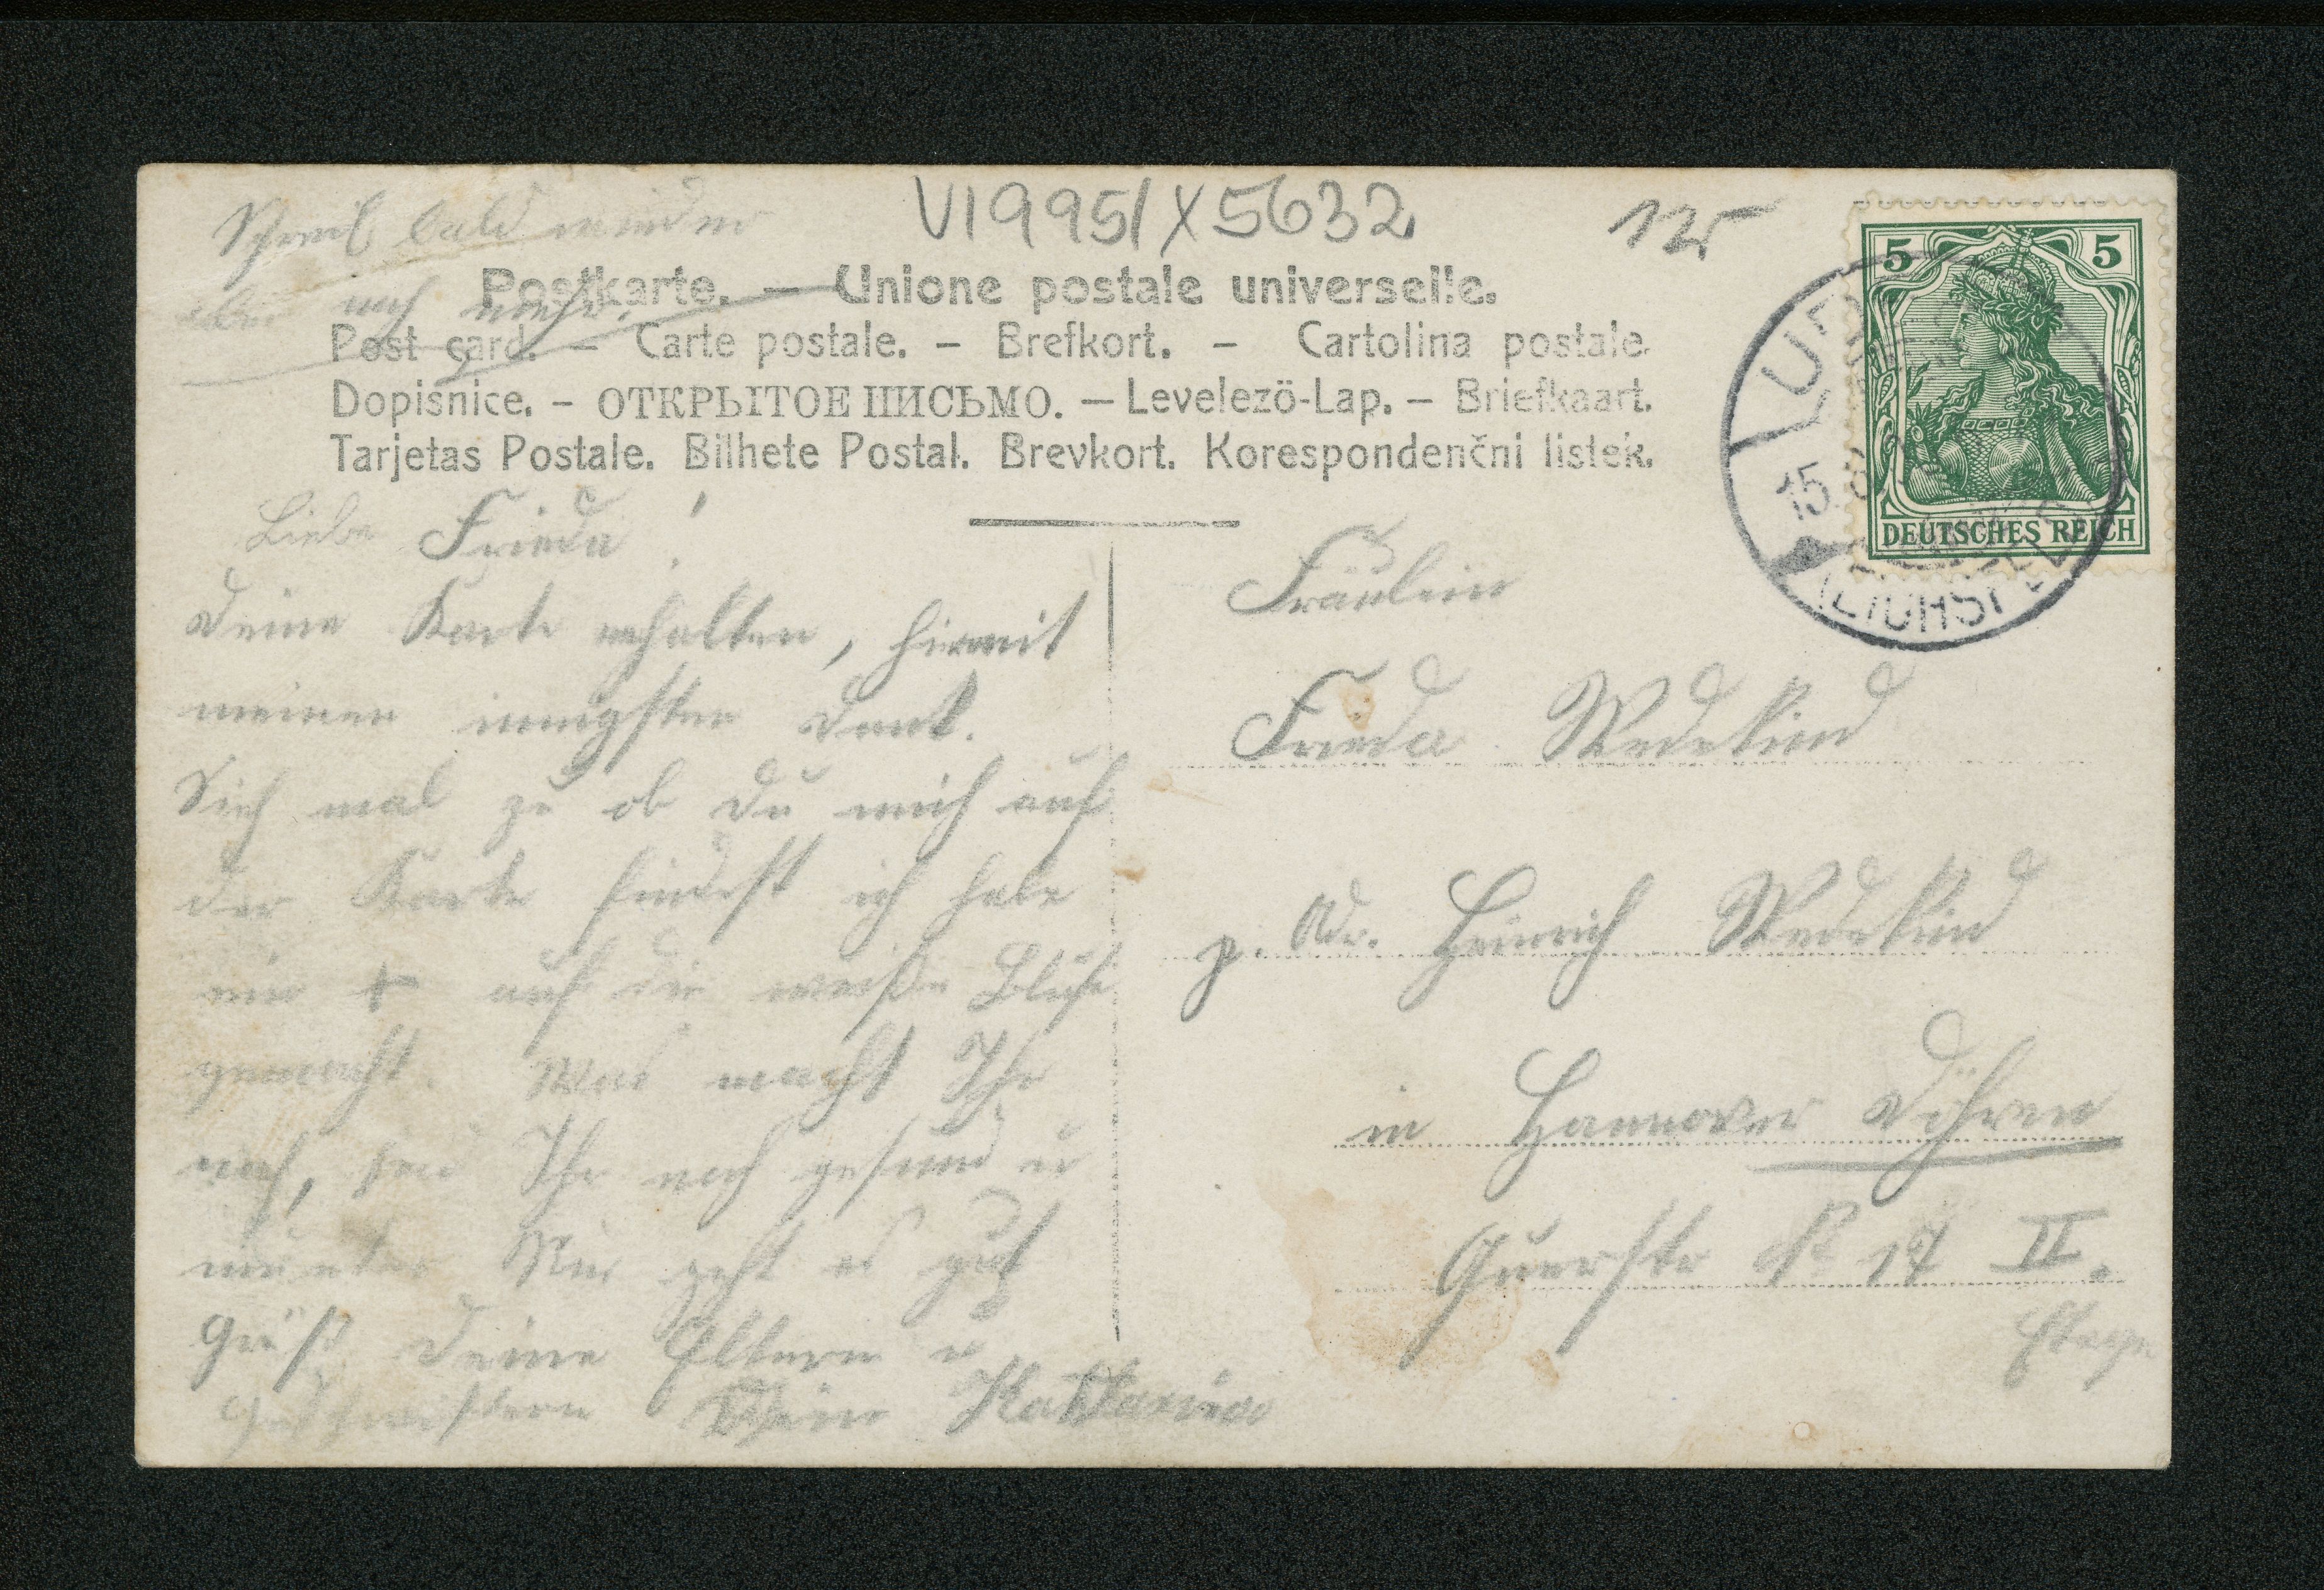 V1995/X5632
12
Schreib bald wieder
aber auch mehr.
Postkarte. — Unione postale universelle.
Post card. – Carte postale. – Brefkort. – Cartolina postale.
Dopisnice. – ОТКРЫТОЕ ПИСЬМО. — Levelezö-Lap. – Briefkaart.
Tarjetas Postale. Bilhete Postal. Brevkort. Korespondenčni listek.
5 5
DEUTSCHES REICH
15.
Liebe Frieda!
Deine Karte erhalten, hiermit
meinen innigsten Dank.
Sieh mal zu ob Du mich auf
der Karte findest ich habe
ein + auf die weiße Bluse
gemacht. Was macht Ihr
noch, seid Ihr noch gesund u
munter Mir geht es gut
Grüß Deine Eltern u
Geschwistern Deine Katharina
Fräulein
Frieda Wedekind
p. Adr. Heinrich Wedekind
in Hannover Döhren
Querstr № 17 II.
Etage